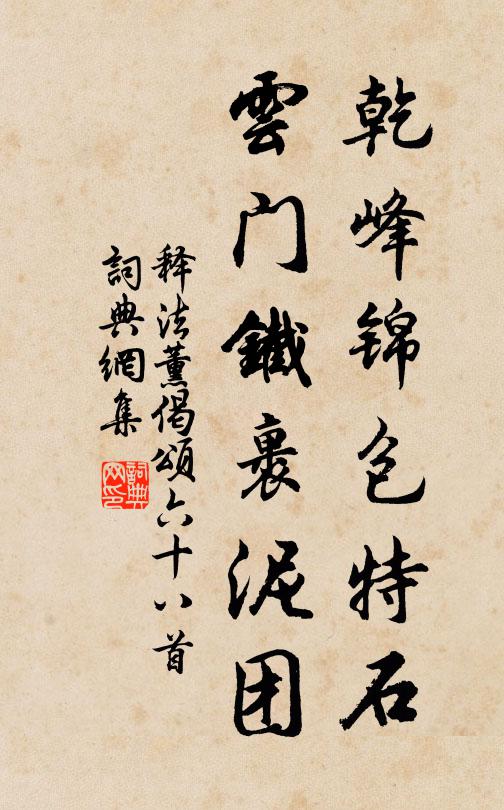 乾峰锦包特石
雲门鐵裹泥团
释法薰偈頌六十八首
詞典網集
詞典网印